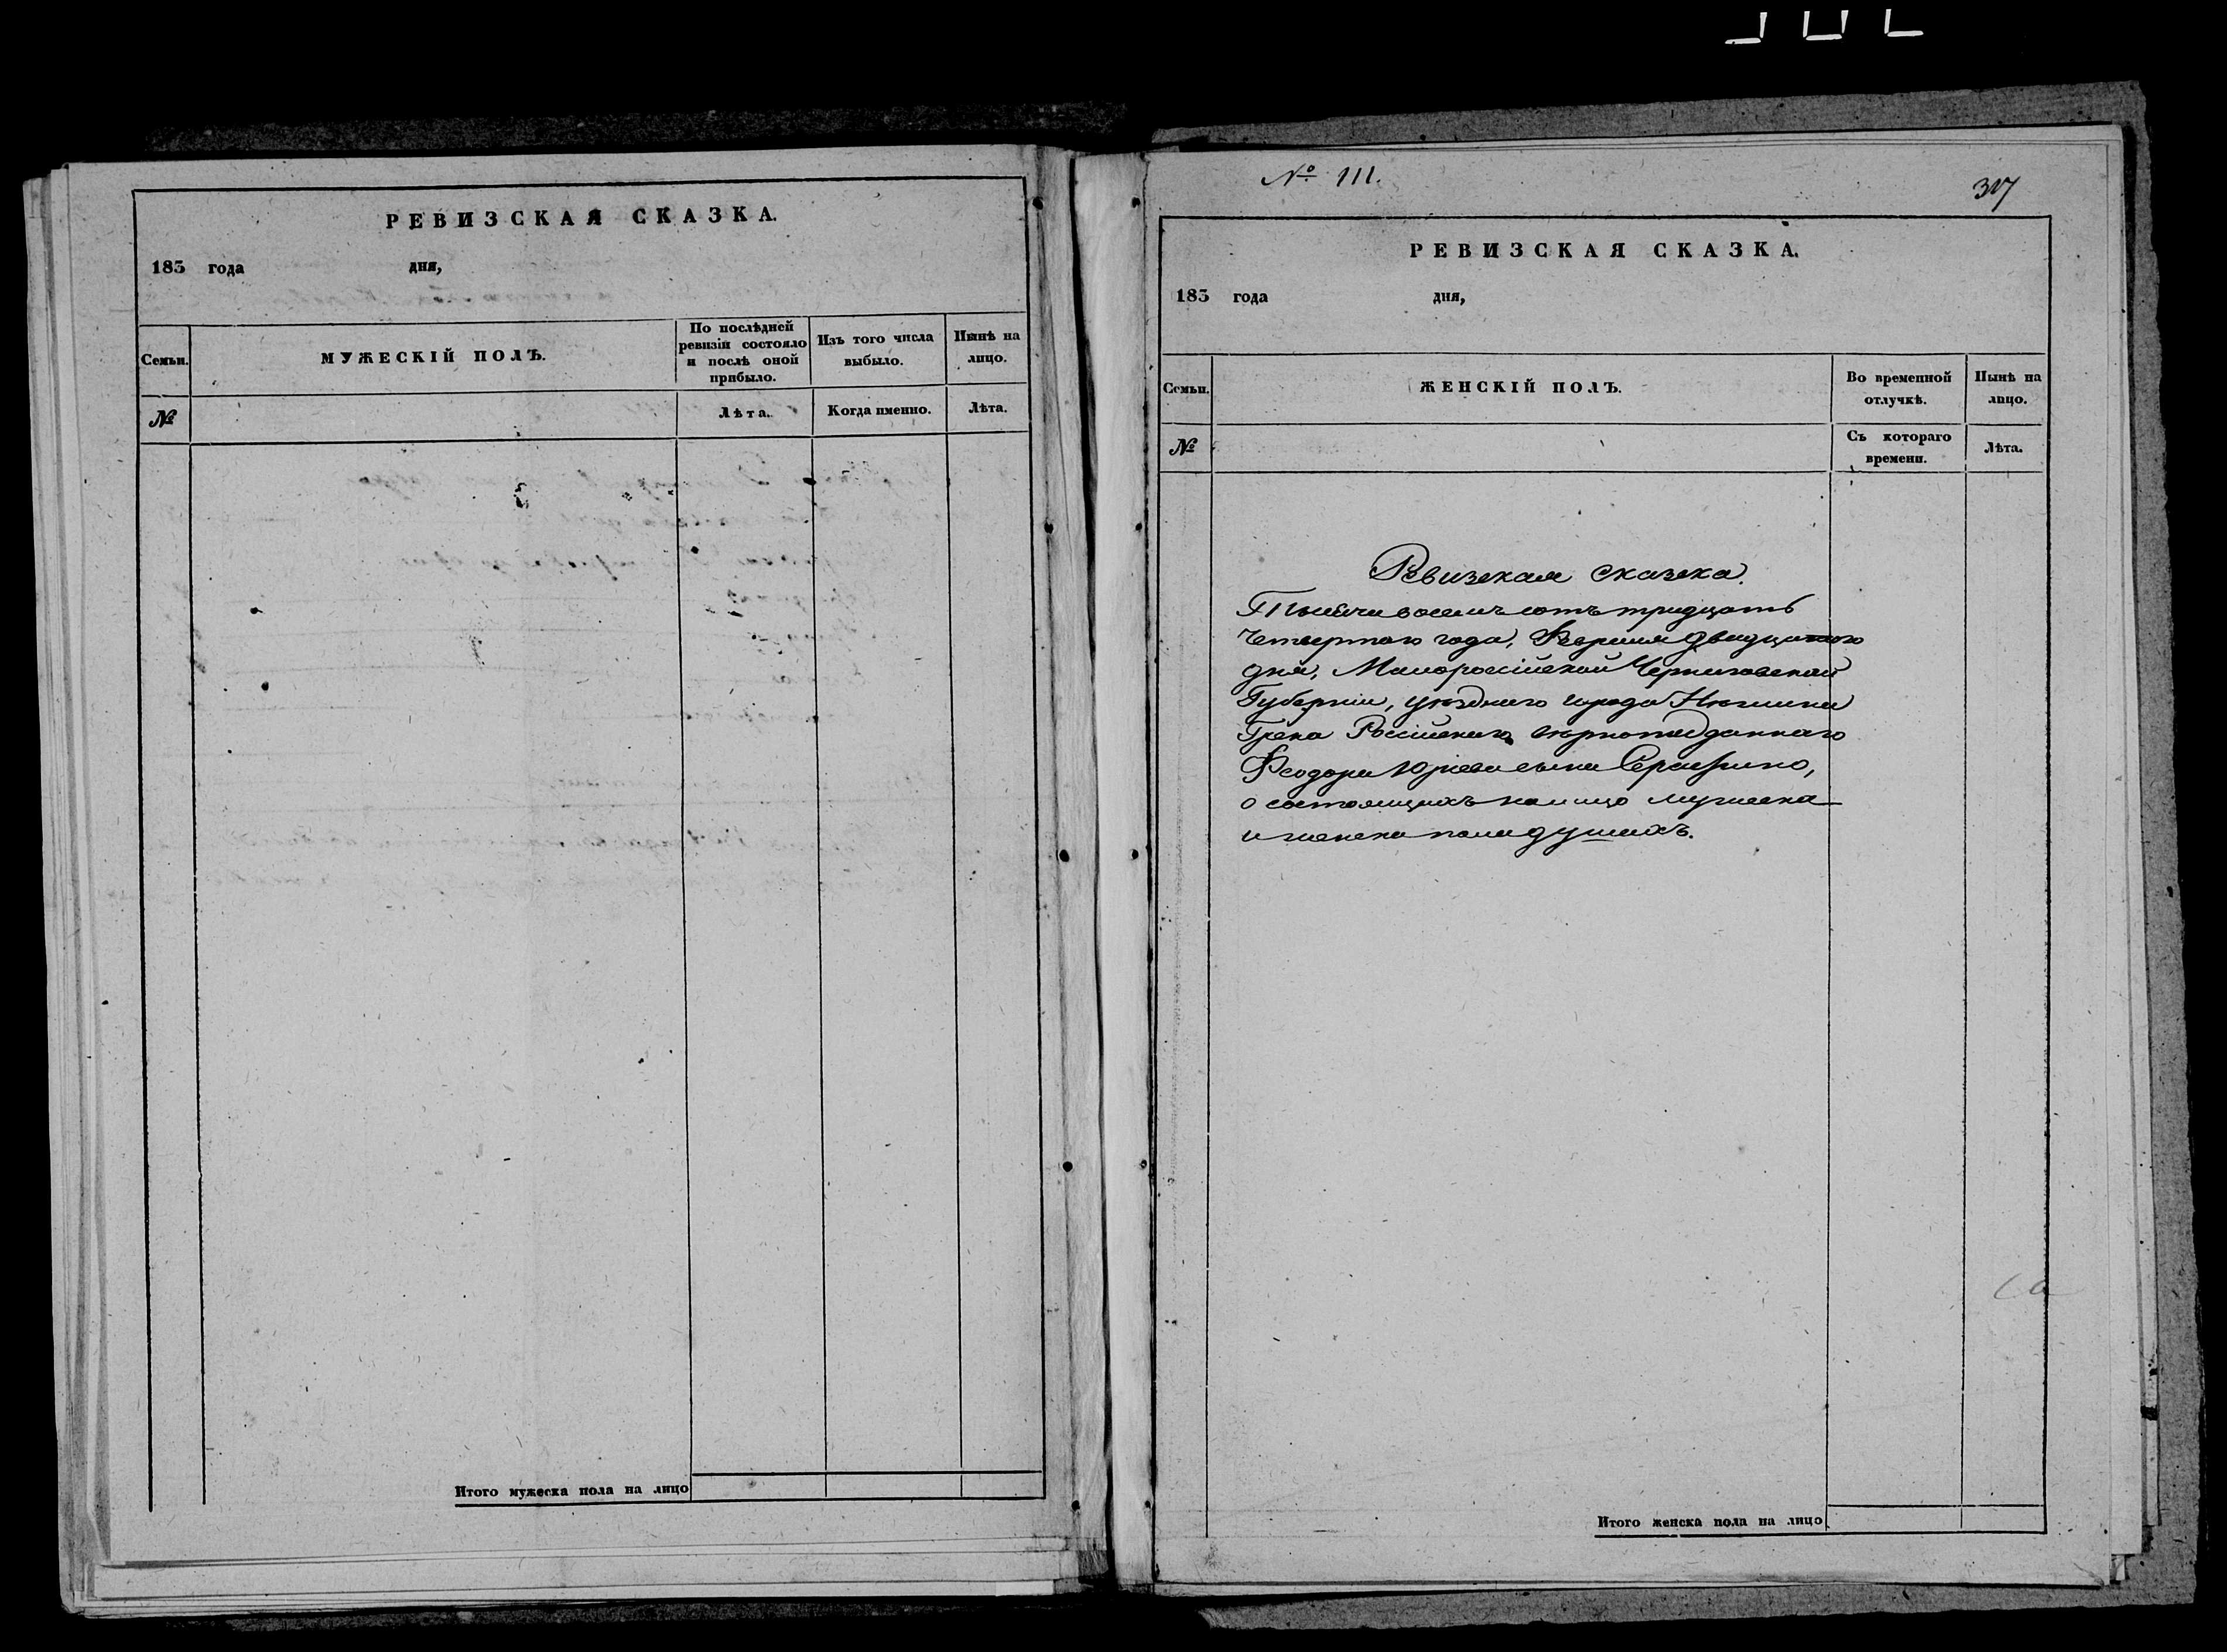 РЕВИЗСКАЯ СКАЗКА.
183 года дня,
Семьи.
МУЖЕСКІЙ ПОЛЪ.
По послѣдней
ревизіи состояло
и послѣ оной
прибыло.
Изъ того числа
выбыло.
Нынѣ на
лицо.
№
Лѣта.
Когда именно.
Лѣта.
Итого мужеска пола на лицо
№ 111.
317
РЕВИЗСКАЯ СКАЗКА.
183 года дня,
Семьи.
ЖЕНСКІЙ ПОЛЪ.
Во временной
отлучкѣ.
Нынѣ на
лицо.
№
Съ котораго
времени.
Лѣта.
Ревизская сказка.
Тысяча восемъ сотъ тридцать
четвертаго года, Февраля двадцатого
дня, Малороссійской Черниговской
Губерніи, уѣзднаго города Нѣжина
Грека Россійскаго вѣрноподданнаго
Феодора Юрьева сына
о состоящихъ на лицо мужеска
и женска пола душахъ.
Итого женска пола на лицо